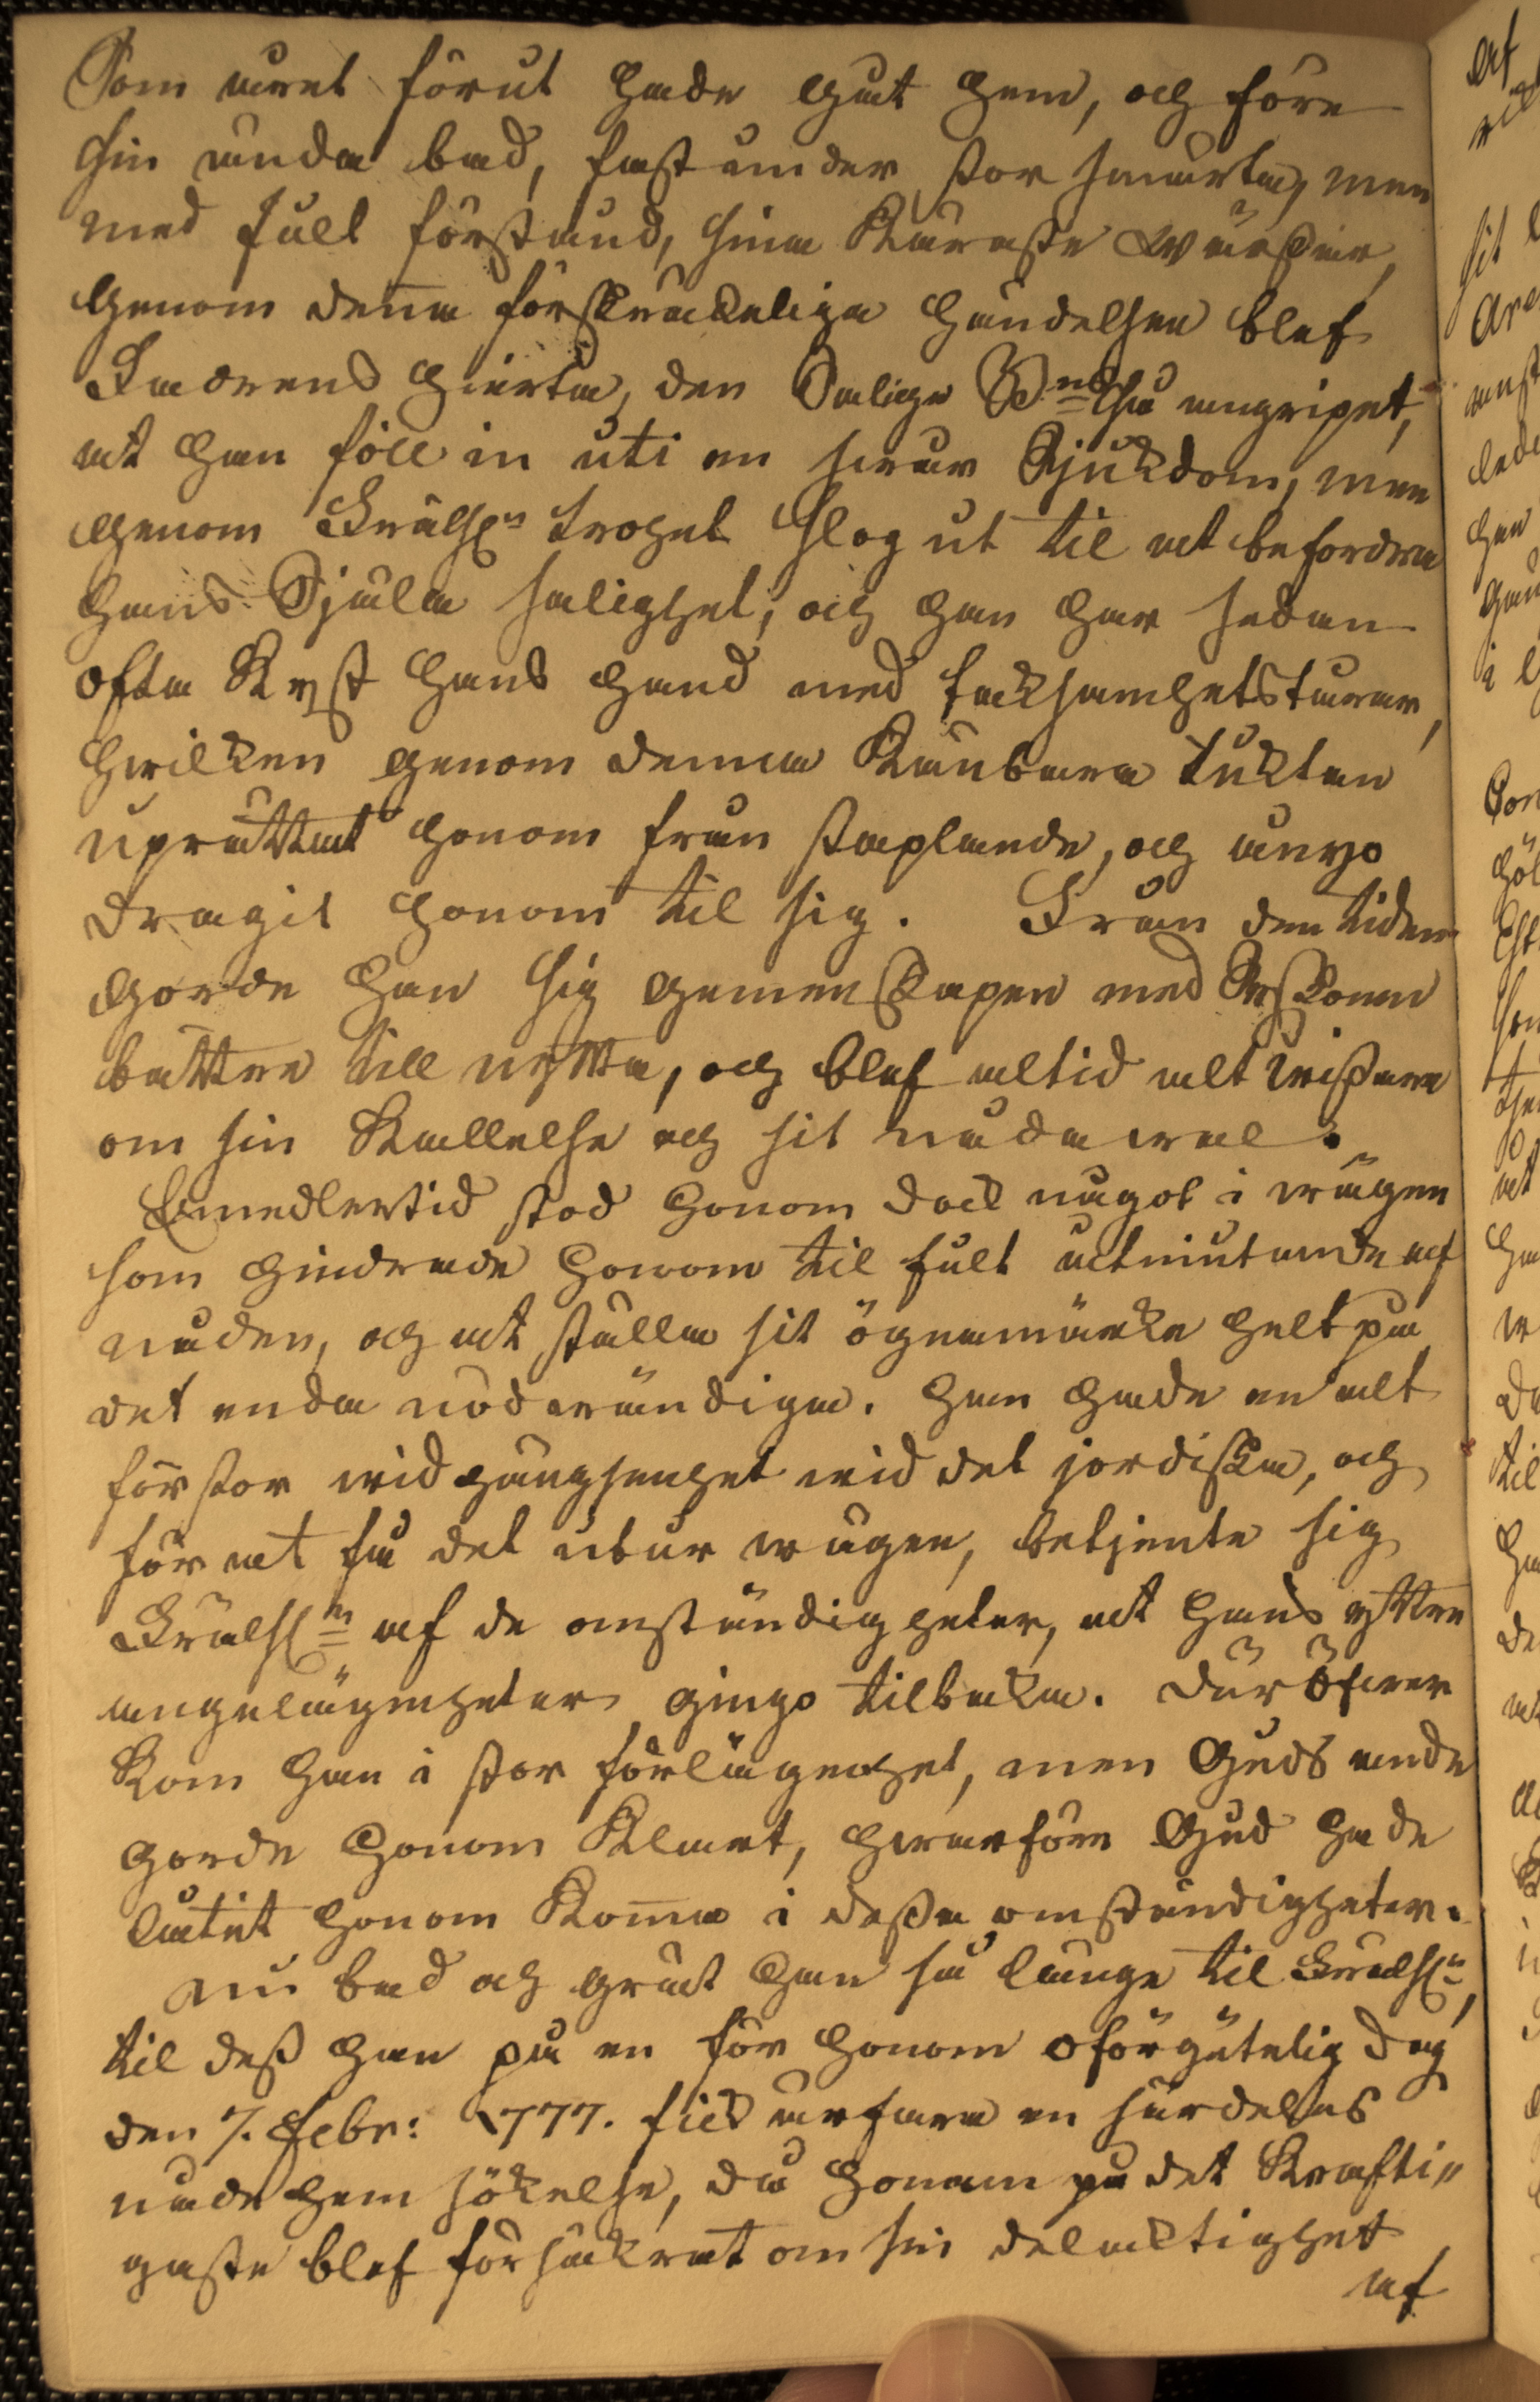 Som året förut hade gått hem, och före
sin ända bad, fast under stor smärta, men
med fult förstånd, sina Käraste wärdar,
genom denna förskräckeliga händelsen blef
Fadrens hierta, den Salige Br. så angripet,
at han föll in uti en swår Sjukdom, men
genom Frälsn trohet slog ut til at befordra
hans Själs salighet, och han har sedan
ofta Kyst hans hand med tacksamhetstårar,
hwilken genom denna Kännbara tucktan
uprättat honom från staplande, och å nyo
dragit honom til sig. Från den tiden
gorde han sig gemenskapen med Syskonen
battre till nytta, och blef altid alt wissare
om sin Kallelse och sit nådawal.
Emedlertid stod honom dock något i wägen
som hindrade honom til fult åtniutande af
nåden, och at ställa sit ögnamärke helt på
det enda nödwändiga. Han hade en alt
för stor widhängsenhet wid det jordiska, och
för at få det utur wägen, betjente sig
Frälsn af de omständigheter, at hans yttre
angelägenheter gingo tilbaka. Däröfwer
Kom han i stor förlägenhet, men Guds ande
gorde honom Klart, hwarföre Gud hade
låtit honom Komma i dessa omständigheter.
Nu bad och grät han så länge til Frälsn,
til dess han på en för honom oförgätelig dag
den 7. Febr: 1777. fick ärfara en särdeles
nåde hem sökelse, då honom på det Krafti„
gaste blef försäkrat om sin delacktighet
af